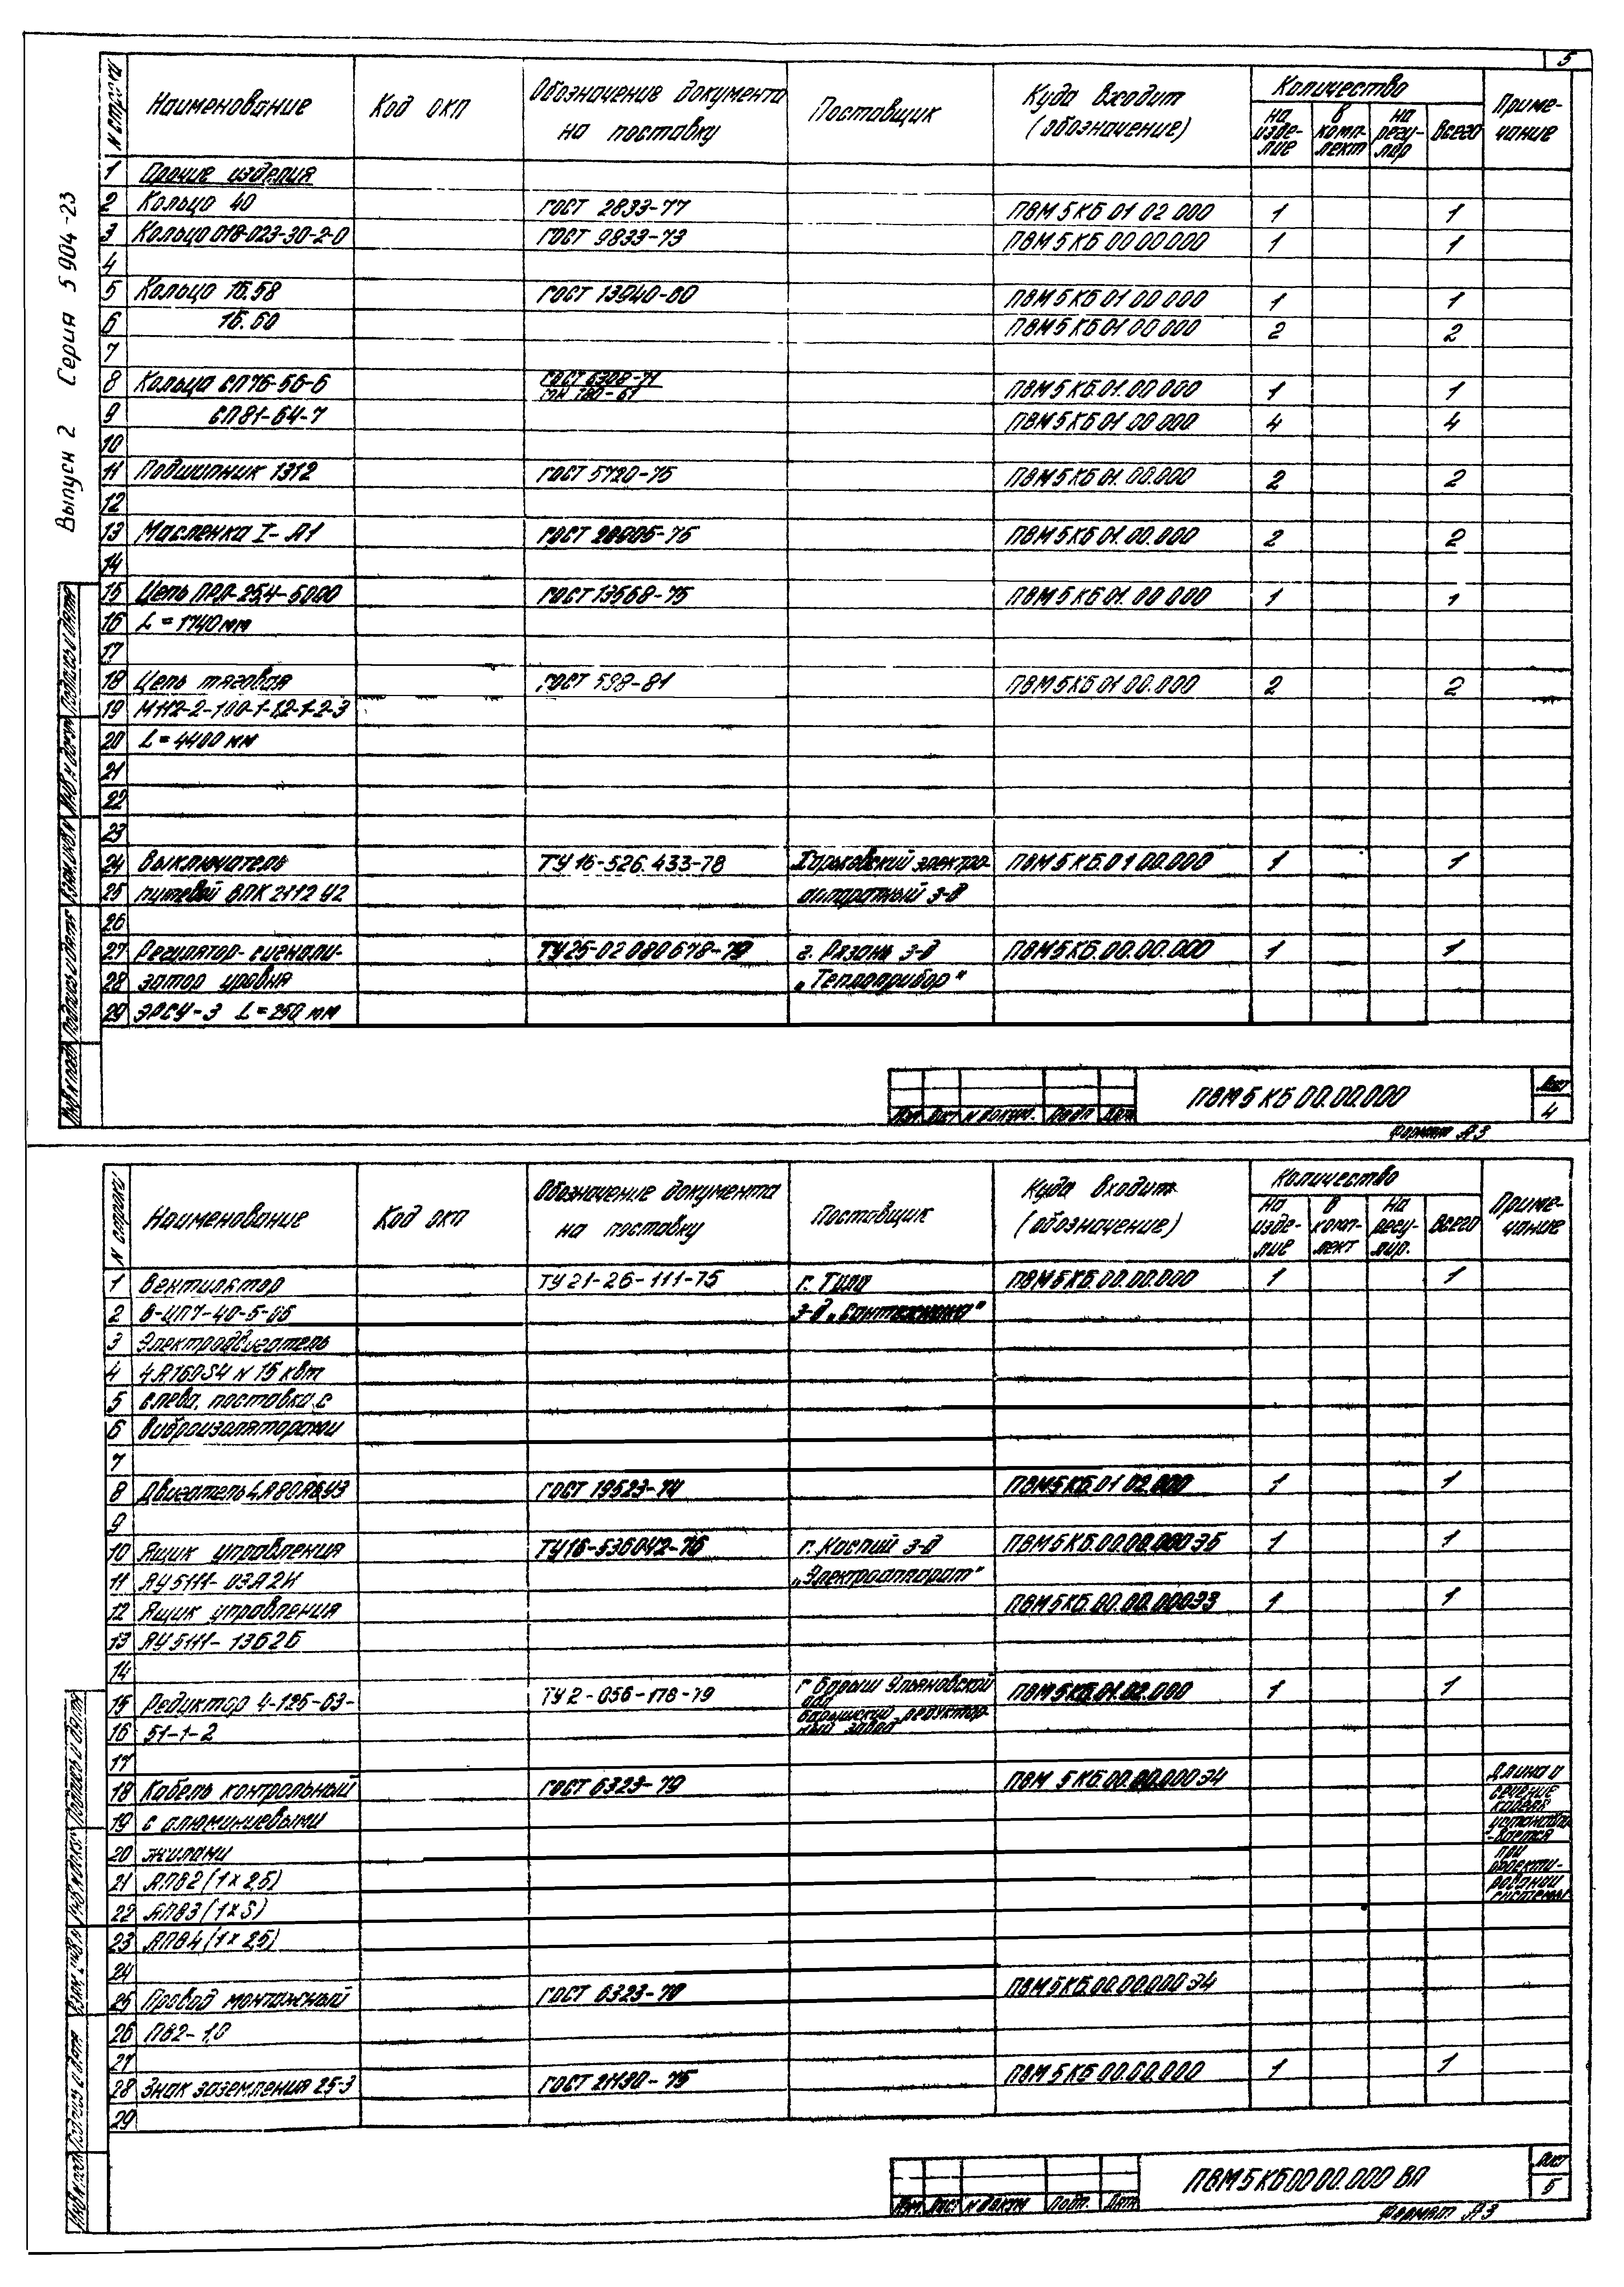 5
Выпуск 2 Серия 5 904-23
N строки Наименование Код окп Обозначения документа на поставку Поставщик Куда входит (обозначение) Количество на изде-лие в комп-лект на регу-лир Всего Приме-чание
1 Прочие изделия
2 Кольцо 40 ГОСТ 2833-77 ПВМ 5 КБ 01 02 000 1 1
3 Кольцо 018-023-30-2-0 ГОСТ 9833-73 ПВМ 5 КБ 00 00 000 1 1
4
5 Кольцо 1Б.58 ГОСТ 13940-80 ПВМ 5 КБ 01 00 000 1 1
6 1Б.60 ПВМ 5 КБ 01 00 000 2 2
7
8 Кольца СП 76-56-6 ГОСТ 6308-71 ПВМ 5 КБ.01.00.000 1 1
9 СП81-64-7 ПВМ 5 КБ 01 00 000 4 4
10
11 Подшипник 1312 ГОСТ 5720-75 ПВМ 5 КБ 01.00.000 2 2
12
13 Масленка I-А1 ГОСТ ПВМ 5 КБ 01.00.000 2 2
14
15 Цепь ПРЛ-25,4-5000 ГОСТ 13568-75 ПВМ 5 КБ 01.00 000 1 1
16 L = 1740 мм
17
18 Цепь тяговая ГОСТ 598-81 ПВМ 5 КБ 01 00.000 2 2
19 М112-2-100-1-1,2-1-2-3
20 L = 4400 мм
21
22
23
24 Выключатель ТУ 16-526.433-78 Горьковский электро- ПВМ 5 КБ.01 00.000 1 1
25 путевой ВПК 2112 У2 аппаратный з-д
26
27 Регулятор-сигнали- ТУ 25-02 080678-79 г. Рязань з-д ПВМ 5 КБ.00.00.000 1 1
28 затор уровня „Теплоприбор"
29 ЭРСУ-3 L = 250 мм
Изм Лист N докум. Подп Дата
ПВМ 5 КБ 00.00.000
Лист
4
Формат А3
N строки Наименование Код окп Обозначение документа на поставку Поставщик Куда входит (обозначение) Количество На изде-лие в комп-лект На регу-лир. Всего Приме-чание
1 Вентилятор ТУ 21-26-111-75 г. Тула ПВМ 5 КБ.00.00.000 1 1
2 В-ЦП7-40-5-05 з-д „Сантехника"
3 Электродвигатель
4 4А160S4 N 15 квт
5 слева, поставка с
6 виброизоляторами
7
8 Двигатель 4А80А6У3 ГОСТ 19523-74 ПВМ 5 КБ.01 02.000 1 1
9
10 Ящик управления ТУ 16-536042-76 г. Каспий з-д ПВМ 5 КБ.00.00.000Э5 1 1
11 ЯУ 5111-03А2И „Электроаппарат"
12 Ящик управления ПВМ 5 КБ.00.00.000Э3 1 1
13 ЯУ 5111-13Б2Б
14
15 Редуктор Ч-125-63- ТУ 2-056-178-79 г Барыш Ульяновской обл ПВМ 5 КБ.01.02.000 1 1
16 51-1-2 Барышский редуктор-ный завод
17
18 Кабель контрольный ГОСТ 6323-79 ПВМ 5 КБ.00.00.000Э4 Длина и
19 с алюминиевыми сечение кабеля устанавли-
20 жилами -вается при
21 АПВ2 (1×2,5) проекти-ровании
22 АПВ3 (1×S) системы
23 АПВ4 (1×2,5)
24
25 Провод монтажный ГОСТ 6323-79 ПВМ 5 КБ.00.00.000Э4
26 ПВ2-1,0
27
28 Знак заземления 25-3 ГОСТ 21130-75 ПВМ 5 КБ 00.00.000 1 1
29
Изм. Лист N докум Подп. Дата
ПВМ 5 КБ 00 00.000 ВП
Лист
5
Формат А3
Инв N подл Подпись и дата Взам. инв. N Инв N дубл Подпись и дата
Инв N подл Подпись и дата Взам. инв N Инв N дубл Подпись и дата